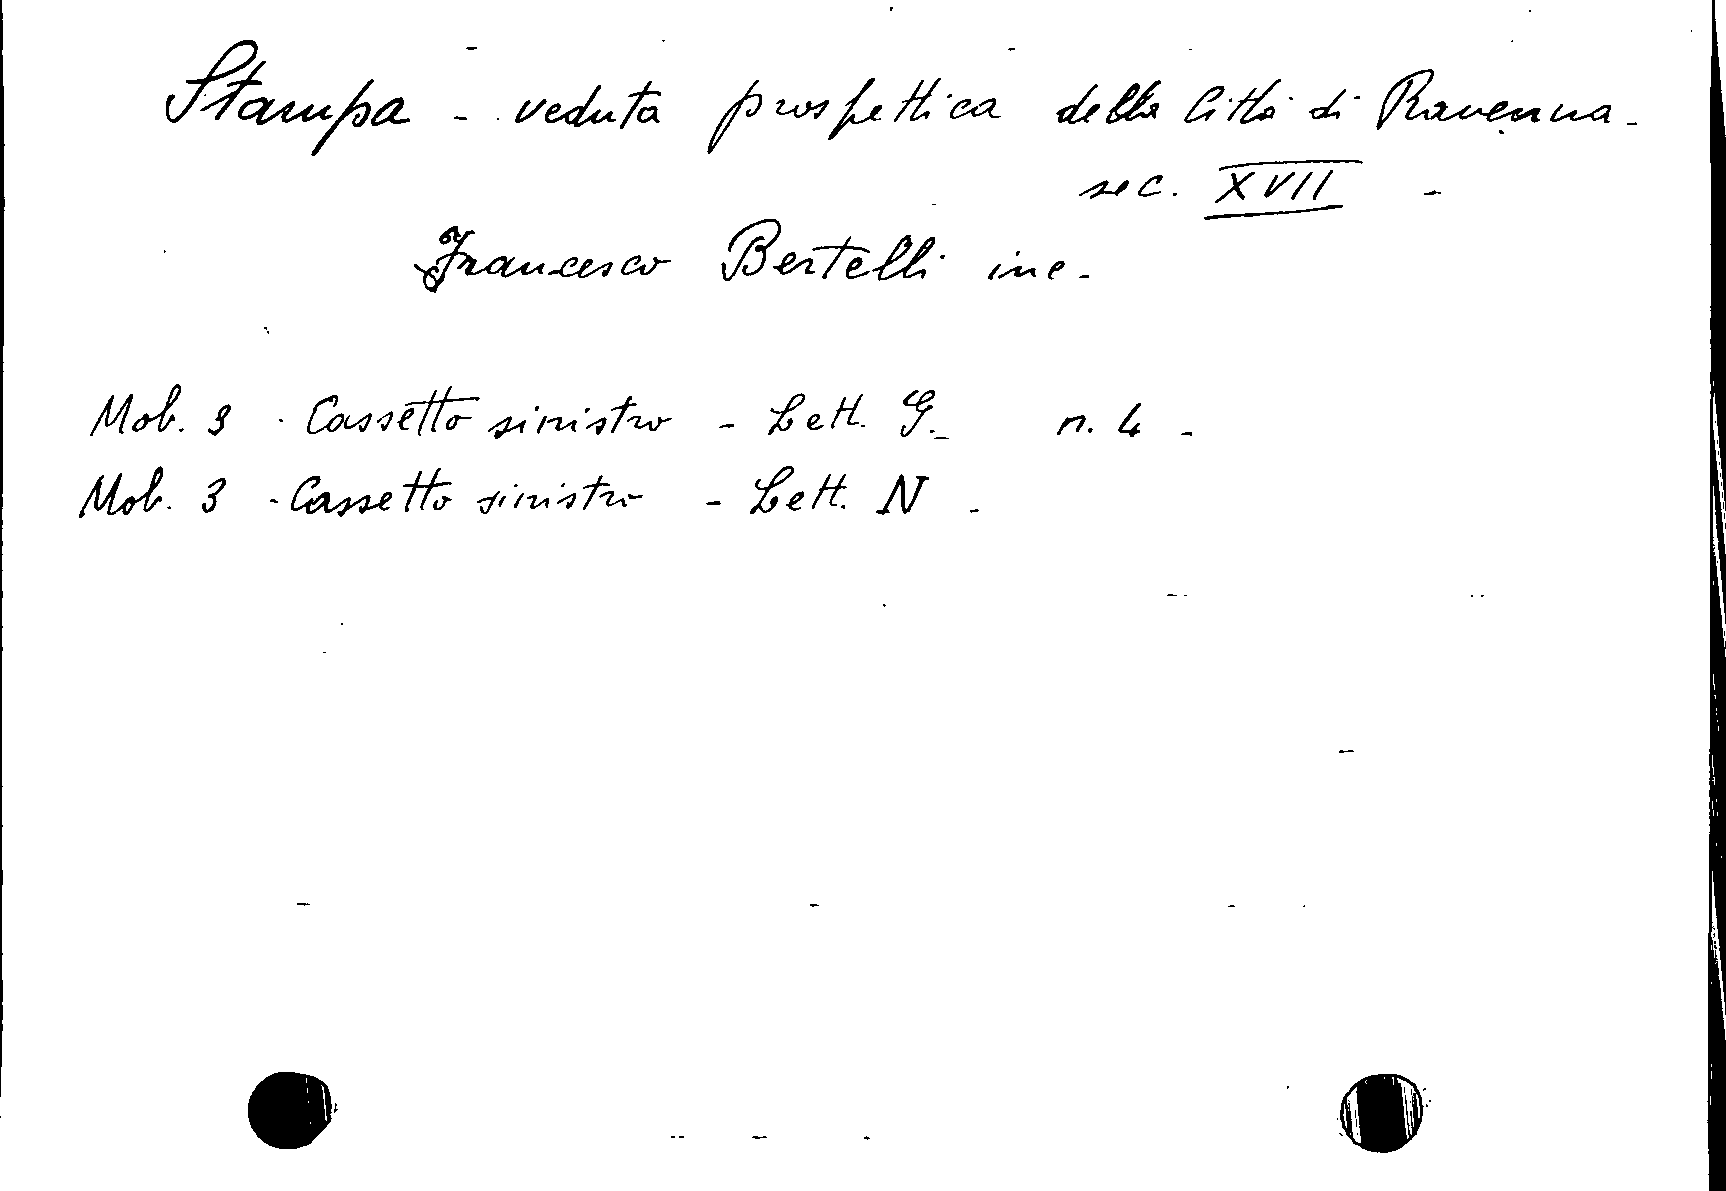 Stampa - veduta prospettica della Città di Ravenna -
sec. XVII -
Francesco Bertelli inc -
Mob. 3 - Cassetto sinistro - Lett. G. - n. 4 -
Mob. 3 - Cassetto sinistro - Lett. N -